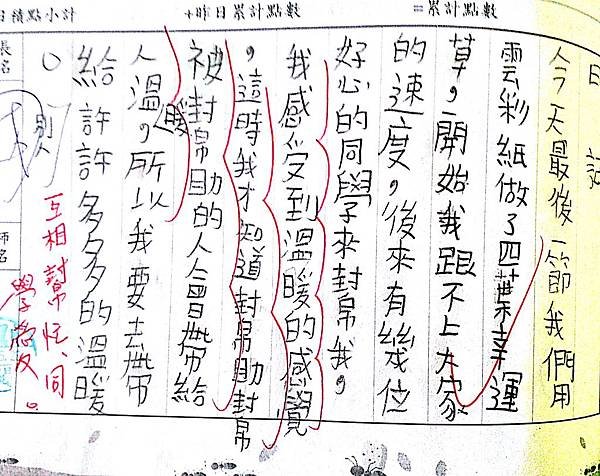 日積點小計 +昨日累計點數 =累計點數
日記
今天最後一節我們用
雲彩紙做了四葉幸運
草,一開始我跟不上大家
的速度,後來有幾位
好心的同學來幫我。
我感受到溫暖的感覺
,這時我才知道幫助幫
被幫助的人會帶給
人溫暖,所以我要去帶
給許許多多的溫暖
。別人
互相幫忙、同
學愛。
長名
師名